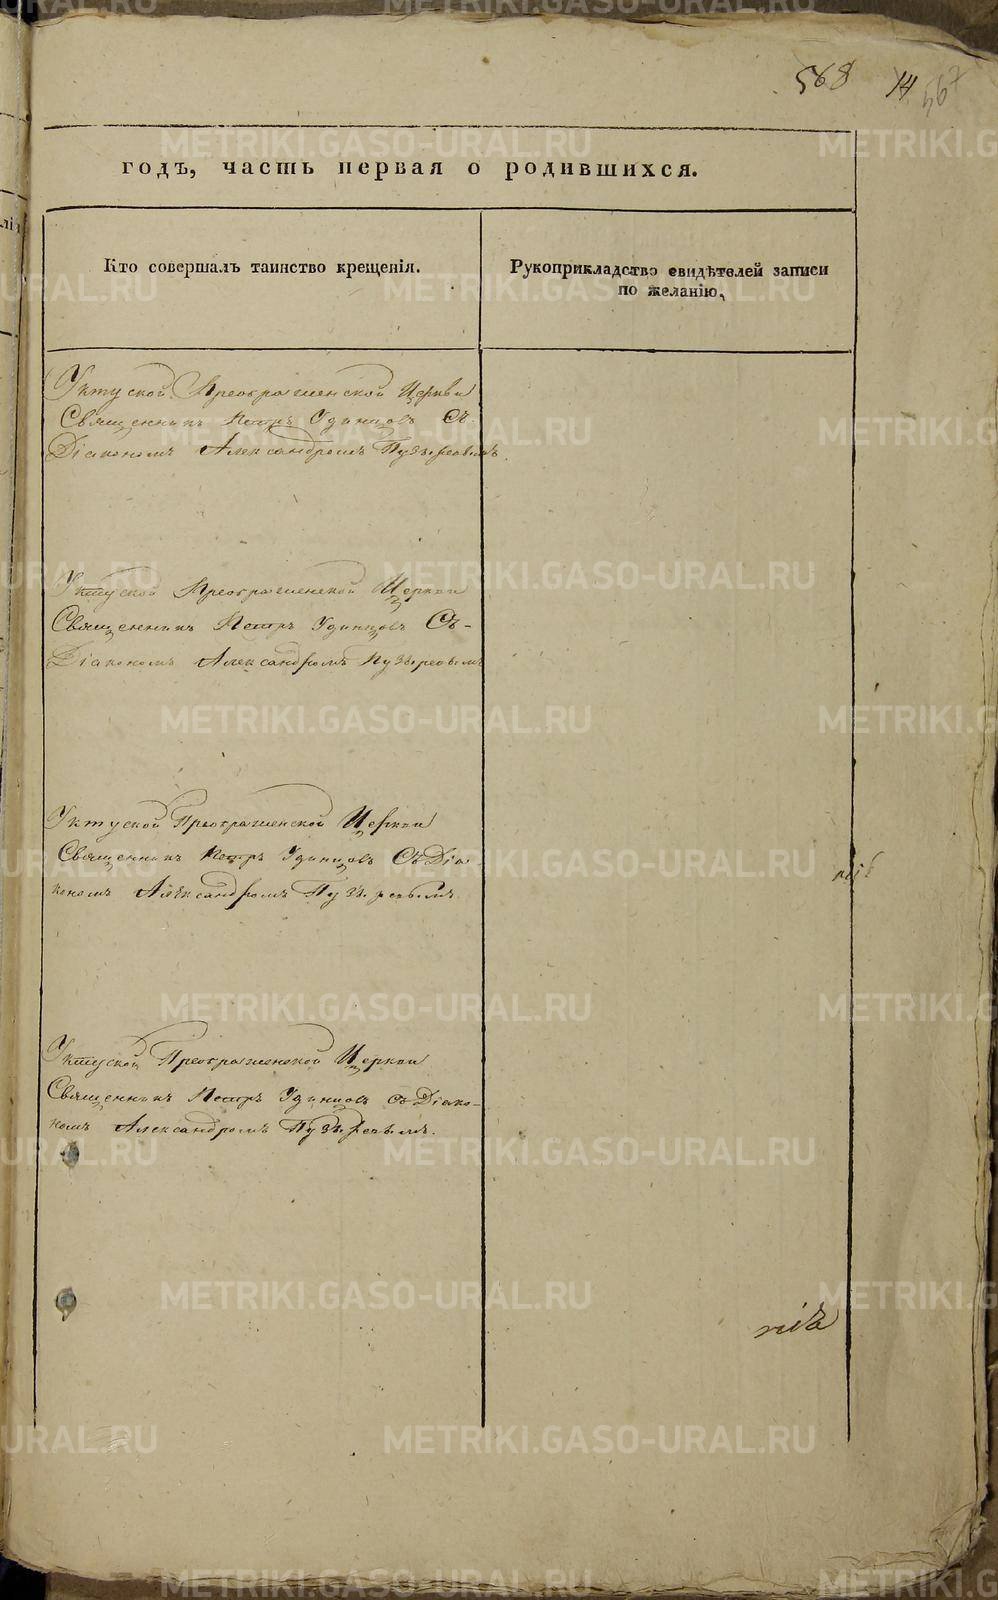 568 14 567
годъ, часть первая о родившихся.
Кто совершалъ таинство крещенія.
Рукоприкладство свидѣтелей записи
по желанію.
Уктуской Преображенской Церкви
Священникъ Петръ Удинцовъ Съ
Діакономъ Александромъ Пузыревымъ
Уктуской Преображенской Церкви
Священникъ Петръ Удинцовъ Съ-
Діакономъ Александромъ Пузыревымъ
Уктуской Преображенской Церкви
Священникъ Петръ Удинцовъ Съ Діа
кономъ Александромъ Пузыревымъ.
Уктуской Преображенской Церкви
Священникъ Петръ Удинцовъ съ Діако-
номъ Александромъ Пузыревымъ.
METRIKI.GASO-URAL.RU